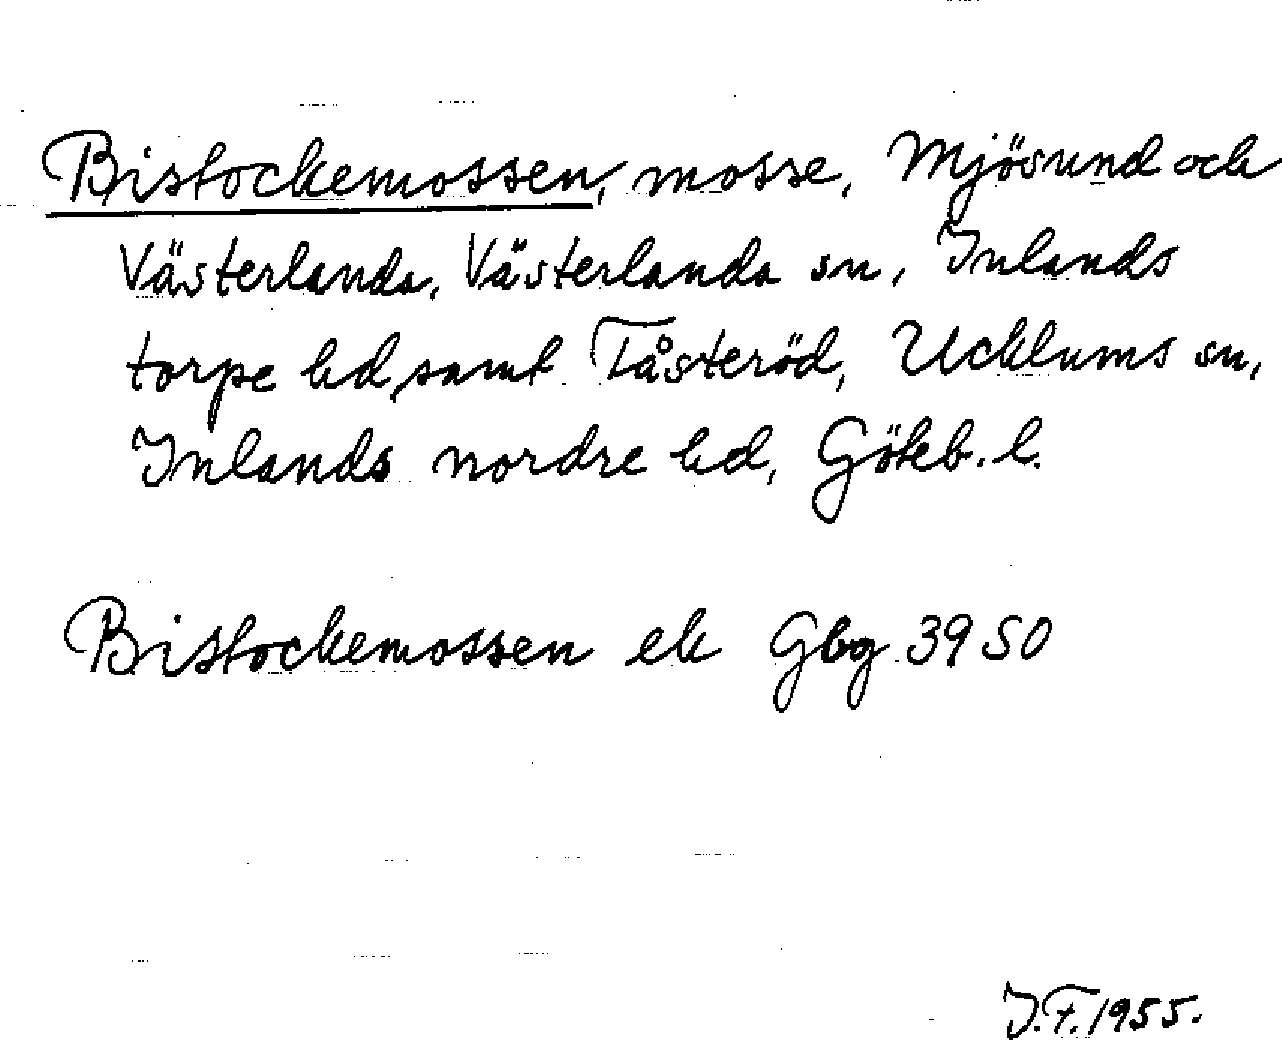 Bistockemossen, mosse, Mjösund och
Västerlanda, Västerlanda sn, Inlands
torpe hd, samt Tåsteröd, Ucklums sn,
Inlands nordre hd, Göteb. l.
Bistockemossen ek Gbg 3950
J.F. 1955.